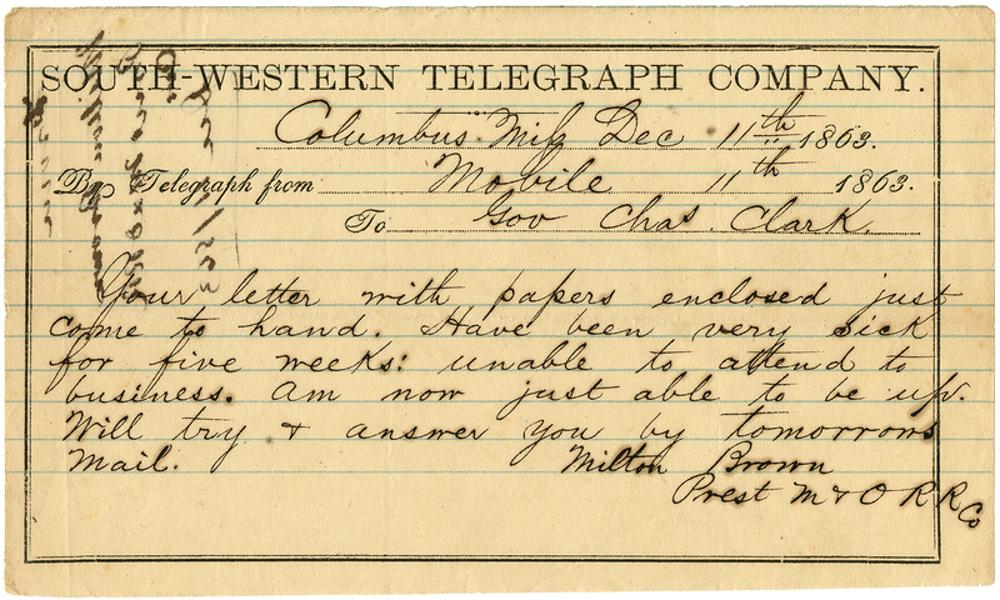 SOUTH-WESTERN TELEGRAPH COMPANY.
Columbus. Miss Dec 11th 1863.
By Telegraph from Mobile 11th 1863.
To Gov Chas. Clark.
Your letter with papers enclosed just
come to hand. Have been very sick
for five weeks: unable to attend to
business. am now just able to be up.
Will try & answer you by tomorrows
Mail. Milton Brown
Prest M & O R R Co